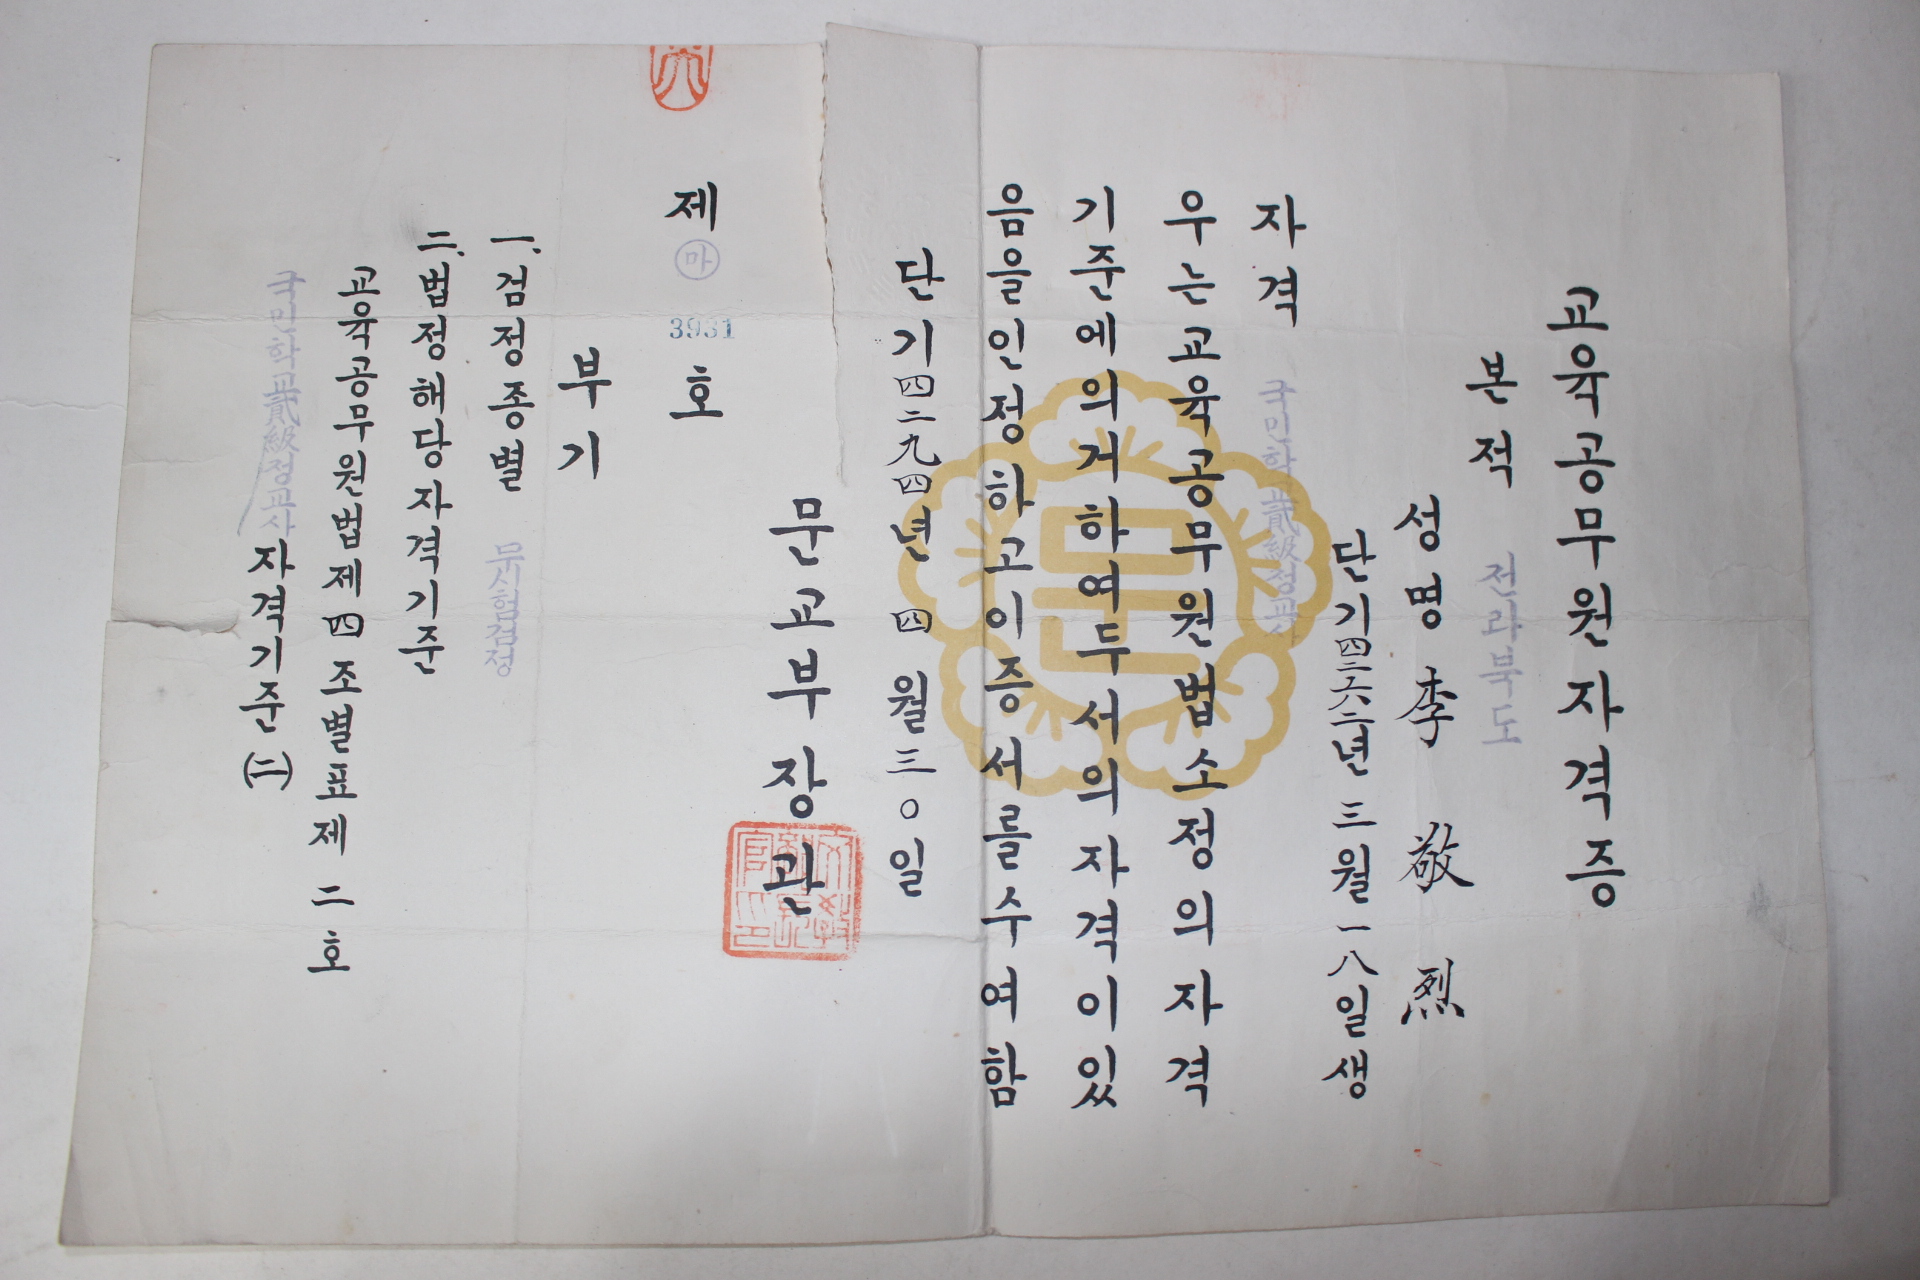 교육공무원자격증
본적 전라북도
성명 李敬烈
단기四二六二년三월一八일생
자격 국민학교貳級정교사
우는교육공무원법소정의자격
기준에의거하여두서의자격이있
음을인정하고이증서를수여함
단기四二九四년 四월三〇일
문교부장관
제 ㉲ 3931 호
부기
一. 검정종별 무시험검정
二. 법정해당자격기준
교육공무원법제四조별표제二호
국민학교貳級정교사 자격기준(二)
문